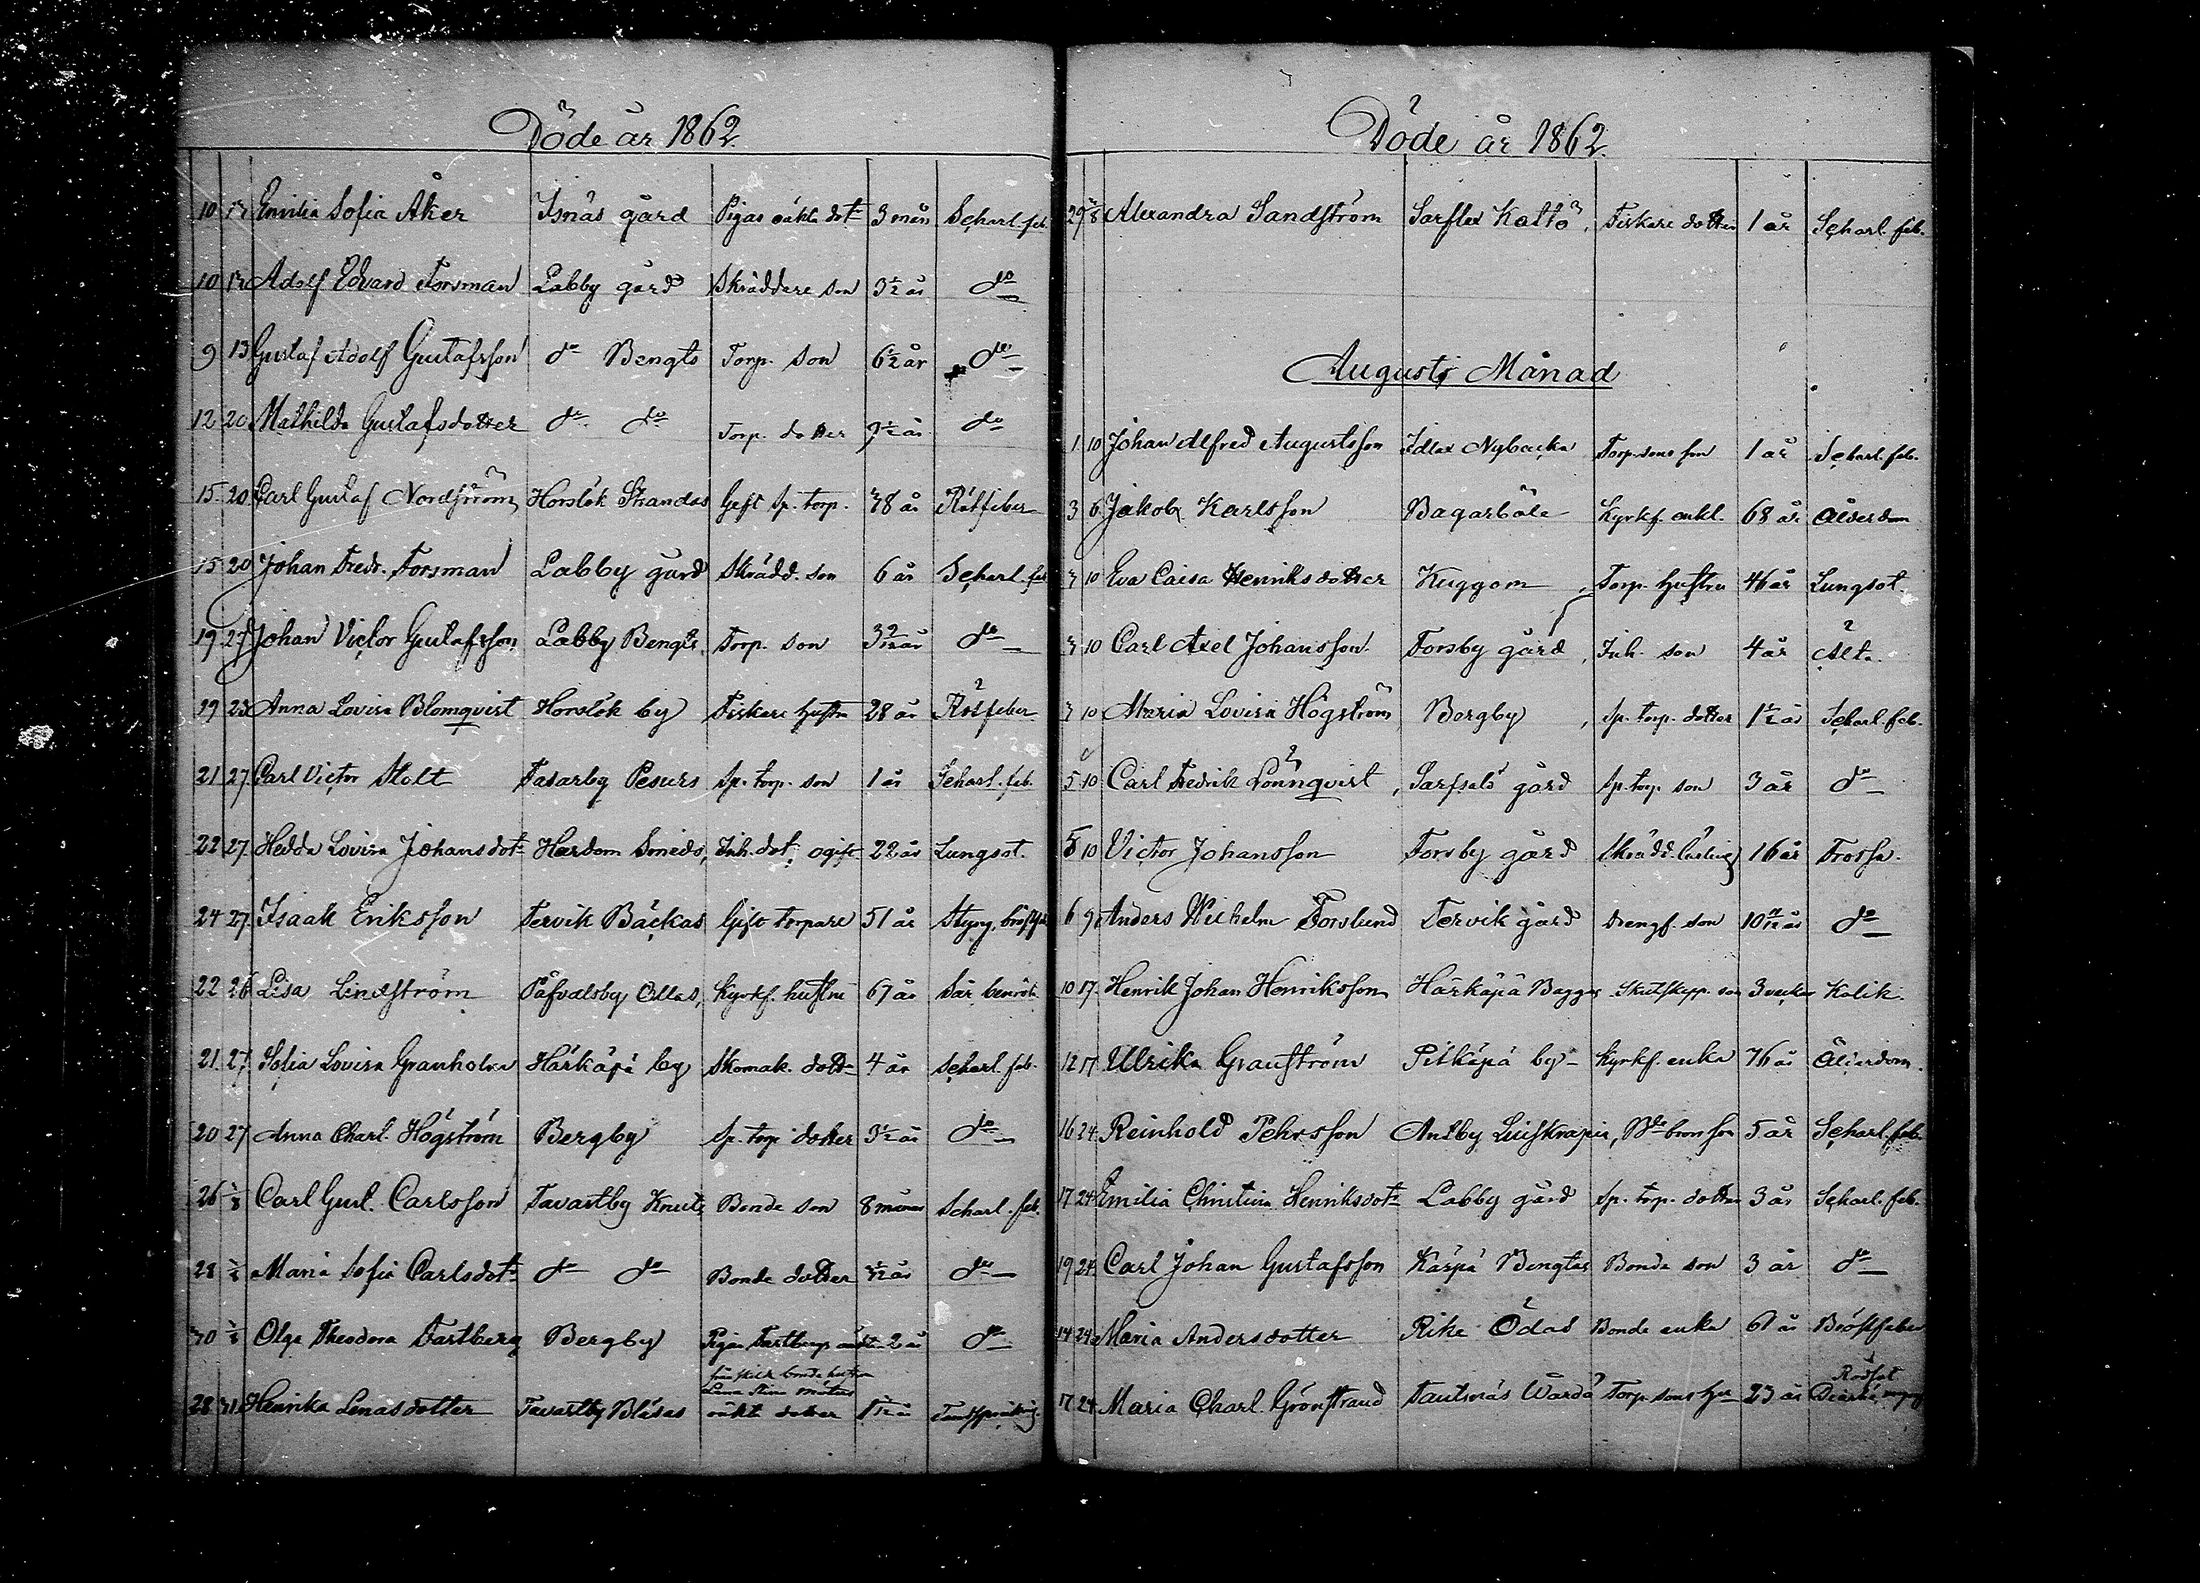 Döde år 1862.
10 13 Emilia Sofia Åker Isnäs gård Pigas oäkta dotr 3 mån Scharl. feb.
10 13 Adolf Edvard Forsman Labby gård Skräddare son 3 1/2 år do
9 13 Gustaf Adolf Gustafsson do Bengts Torp. son 6 1/2 år do
12 20 Mathilda Gustafsdotter do do Torp. dotter år do
15 20 Carl Gustaf Nordström Horslök Strandas Gift sp. torp. 78 år Rötfeber
15 20 Johan Fredr. Forsman Labby gård Skrädd. son 6 år Scharl. feb
19 27 Johan Victor Gustafsson Labby Bengts Torp. son 3 9/12 år do
19 23 Anna Lovisa Blomqvist Horslök by Fiskare hustru 28 år Rötfeber
21 27 Carl Victor Stolt Tasarby Pesurs sp. torp. son 1 år Scharl. feb.
22 27. Hedda Lovisa Johansdotr Hardom Smeds, Inh. dot. ogift 22 år Lungsot.
24 27. Isaak Eriksson Tervik Bäckas Gift torpare 51 år Styng, bröst
22 26 Lisa Lindström Påfvalsby Ollas, Kyrkf. hustru 67 år Sår
21. 27. Sofia Lovisa Granholm Härkäpä by Skomak. dotr 4 år Scharl. feb.
20 27 Anna Charl. Högström Bergby sp. torp dotter 3 1/2 år do
26 1/8 Carl Gust. Carlsson Tavastby Knuts Bonde son 8 månar Scharl. feb.
28 1/8 Maria Sofia Carlsdotr do do Bonde dotter år do
30 1/8 Olga Theodora Fastberg Bergby Pigan Fastbergs oäkta 2 år do
frånskild bondehustru
Lena Stina
28 31 Henrika Lenasdotter Tavastby Blåsas oäkta dotter år
Döde år 1862.
29 3/8 Alexandra Sandström Sarflax Kattö, Fiskare dotter 1 år Scharl. feb.
Augusti Månad
1 10 Johan Alfred Augustsson Idlax Nybacka Torp.sons son 1 år Scharl. feb.
3 6 Jakob Karlsson Bagarböle Kyrkf. enkl. 68 år Ålderdom
3 10 Eva Caisa Henriksdotter Kuggom Torp. hustru 46 år Lungsot.
3 10 Carl Axel Johansson. Forsby gård, Inh. son 4 år Ält.
3 10 Maria Lovisa Högström Bergby, sp. torp. dotter 1 1/2 år Scharl. feb.
5 10 Carl Fredrik Lönnqvist, Sarfsalö gård sp. torp. son 3 år do
5 10 Victor Johansson Forsby gård Skrädd. lärling 16 år Frossa.
6 9 Anders Wilhelm Forslund Tervik gård Drengf. son 10 år do
10 17. Henrik Johan Henriksson Härkäpä Baggas Skutskepp. son 3 veckor Kolik.
12 17. Ulrika Granström Pitkäpä by Kyrkf. enka 76 år Ålderdom.
16 24. Reinhold Pehrsson Antby 5 år Scharl. feb.
17 24 Emilia Christina Henriksdotr Labby gård sp. torp. dotter 3 år Scharl. feb.
19 24. Carl Johan Gustafsson Käspä Bengtas Bonde son 3 år do
14 24 Maria Andersdotter Rike Ödas Bonde enka 67 år Bröstfeber
17 24 Maria Charl. Grönstrand Tautsnäs Wårdö Torp. sons hu 23 år Rödsot